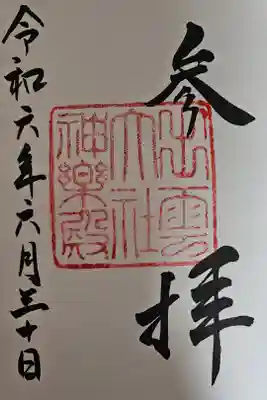 参拝
出雲
大社
神樂殿
令和六年六月三十日